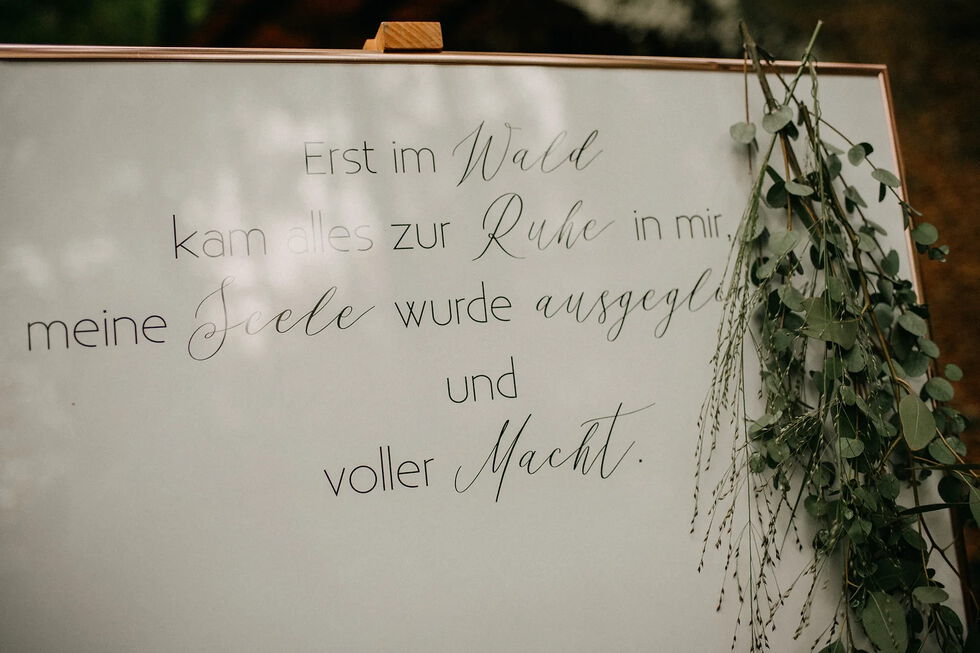 Erst im Wald
kam alles zur Ruhe in mir,
meine Seele wurde
und
voller Macht.